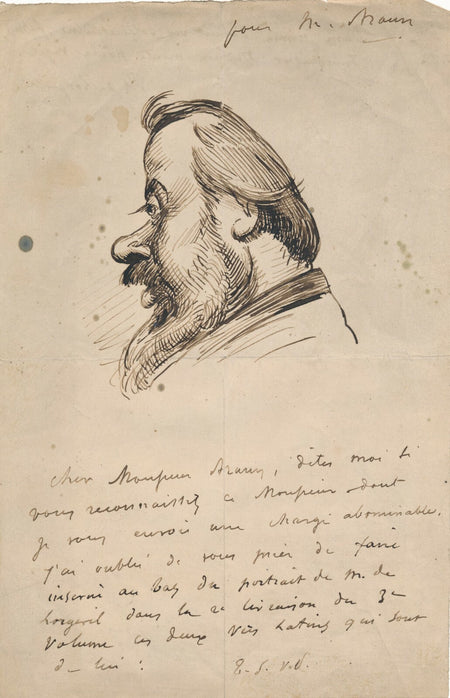 pour M.
cher Monsieur, dites moi si
vous reconnaissez ce Monsieur dont
je vous envoie une charge abominable.
J'ai oublié de vous prier de faire
inscrire au bas du portrait de M. de
dans la 2e livraison du 3e
volume ces deux vers latins qui sont
de lui : T. S. V. P.